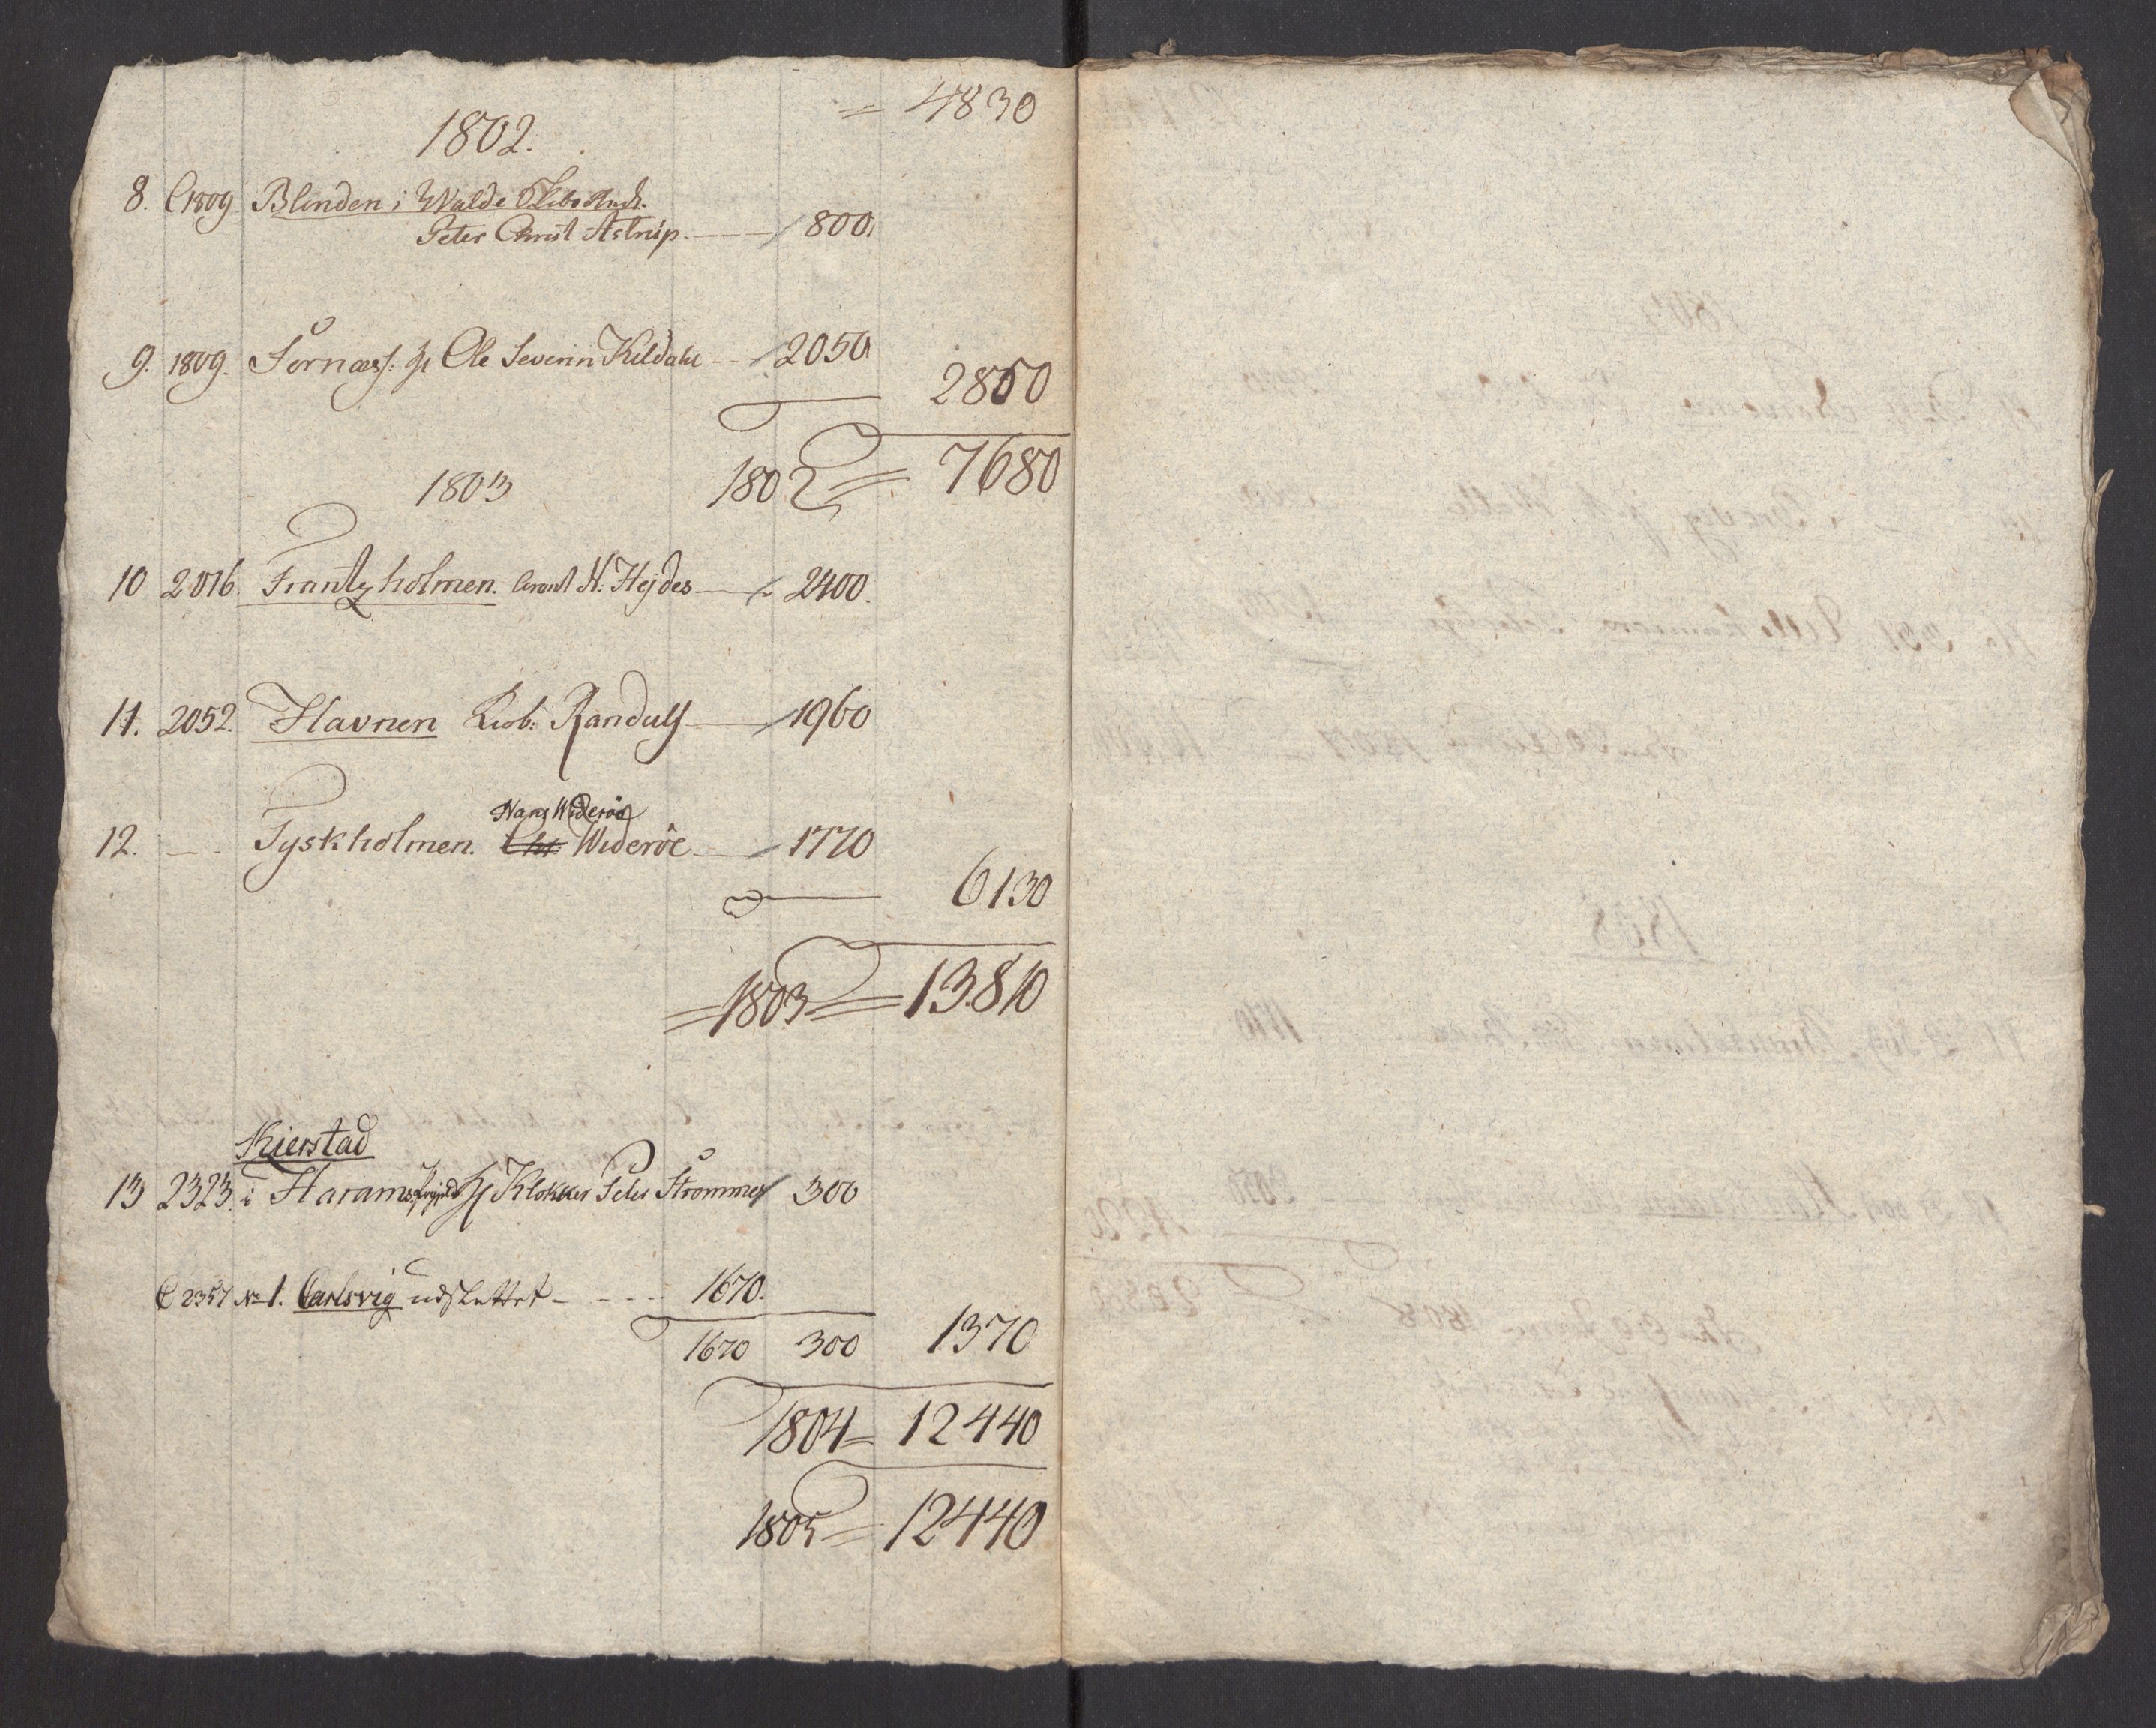 = 4830
1802.
8. C1809 Blinden i Walde
Peter Christ Astrup. — 800.
9. 1809. Sornæss: Ole Severin Kildahl — 2050
2850
1802 = 7680
1803
10 2016. Frantzholmen. N. Hejdes — 2400.
11. 2052. Havnen Randulf — 1960
Hans Wideröe
12. — Tyskholmen. Chr: Wideröe — 1770
6130
= 1803 = 13810
Kierstad
13 2323. i Harams Klokker Peter Strømme 300
C 2357 No 1. Carlsvig udslettet — 1670.
1670 300 1370
1804 = 12440
1805 = 12440